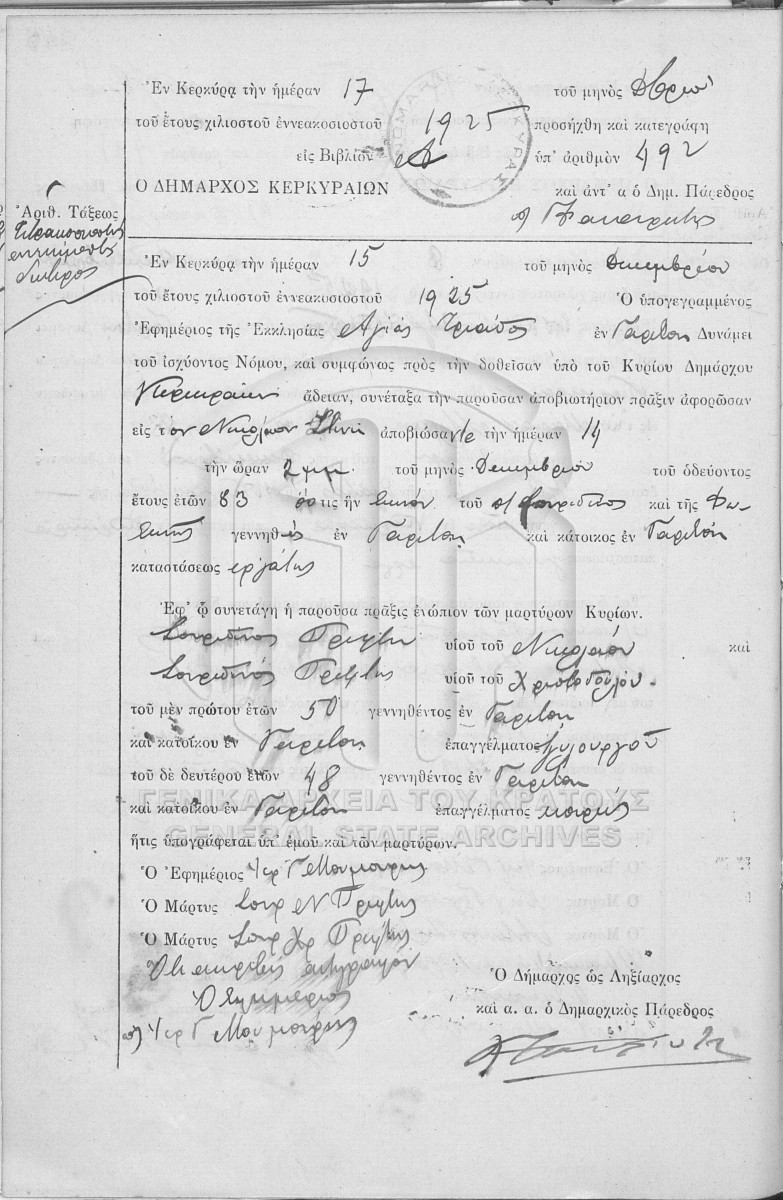 Ἐν Κερκύρᾳ τὴν ἡμέραν 17 τοῦ μηνὸς Δβρίου
τοῦ ἔτους χιλιοστοῦ ἐννεακοσιοστοῦ 1925 προσήχθη καὶ κατεγράφη
εἰς Βιβλίον Α ὑπ' ἀριθμὸν 492
Ο ΔΗΜΑΡΧΟΣ ΚΕΡΚΥΡΑΙΩΝ καὶ ἀντ' α ὁ Δημ. Πάρεδρος
Ἀριθ. Τάξεως
Ἐν Κερκύρᾳ τὴν ἡμέραν 15 τοῦ μηνὸς Δεκεμβρίου
τοῦ ἔτους χιλιοστοῦ ἐννεακοσιοστοῦ 1925 Ὁ ὑπογεγραμμένος
Ἐφημέριος τῆς Ἐκκλησίας Αγίας Τριάδος ἐν Γαρίτση Δυνάμει
τοῦ ἰσχύοντος Νόμου, καὶ συμφώνως πρὸς τὴν δοθεῖσαν ὑπὸ τοῦ Κυρίου Δημάρχου
Κερκυραίων ἄδειαν, συνέταξα τὴν παροῦσαν ἀποβιωτήριον πρᾶξιν ἀφορῶσαν
εἰς τὸν Νικόλαον ἀποβιώσαντα τὴν ἡμέραν 14
τὴν ὥραν 2 μμ. τοῦ μηνὸς Δεκεμβρίου τοῦ ὁδεύοντος
ἔτους ἐτῶν 83 ὅστις ἦν τοῦ Σπυρίδωνος καὶ τῆς Φω-
τεινῆς γεννηθεὶς ἐν Γαρίτση καὶ κάτοικος ἐν Γαρίτση
καταστάσεως εργάτης
Ἐφ' ᾧ συνετάγη ἡ παροῦσα πρᾶξις ἐνώπιον τῶν μαρτύρων Κυρίων.
Σπυρίδωνος υἱοῦ τοῦ Νικολάου καὶ
Σπυρίδωνος υἱοῦ τοῦ Χριστοδούλου
τοῦ μὲν πρώτου ἐτῶν 50 γεννηθέντος ἐν Γαρίτση
καὶ κατοίκου ἐν Γαρίτση ἐπαγγέλματος ξυλουργοῦ
τοῦ δὲ δευτέρου ἐτῶν 48 γεννηθέντος ἐν Γαρίτση
ΓΕΝΙΚΑ ΑΡΧΕΙΑ ΤΟΥ ΚΡΑΤΟΥΣ
καὶ κατοίκου ἐν Γαρίτση ἐπαγγέλματος
GENERAL STATE ARCHIVES
ἥτις ὑπογράφεται ὑπ' ἐμοῦ καὶ τῶν μαρτύρων.
Ὁ Ἐφημέριος
Ὁ Μάρτυς Σπυρ Ν
Ὁ Μάρτυς Σπυρ Χρ
ακριβὲς αντίγραφον
Ὁ Δήμαρχος ὡς Ληξίαρχος
Ὁ Εφημέριος
καὶ α. α. ὁ Δημαρχικὸς Πάρεδρος